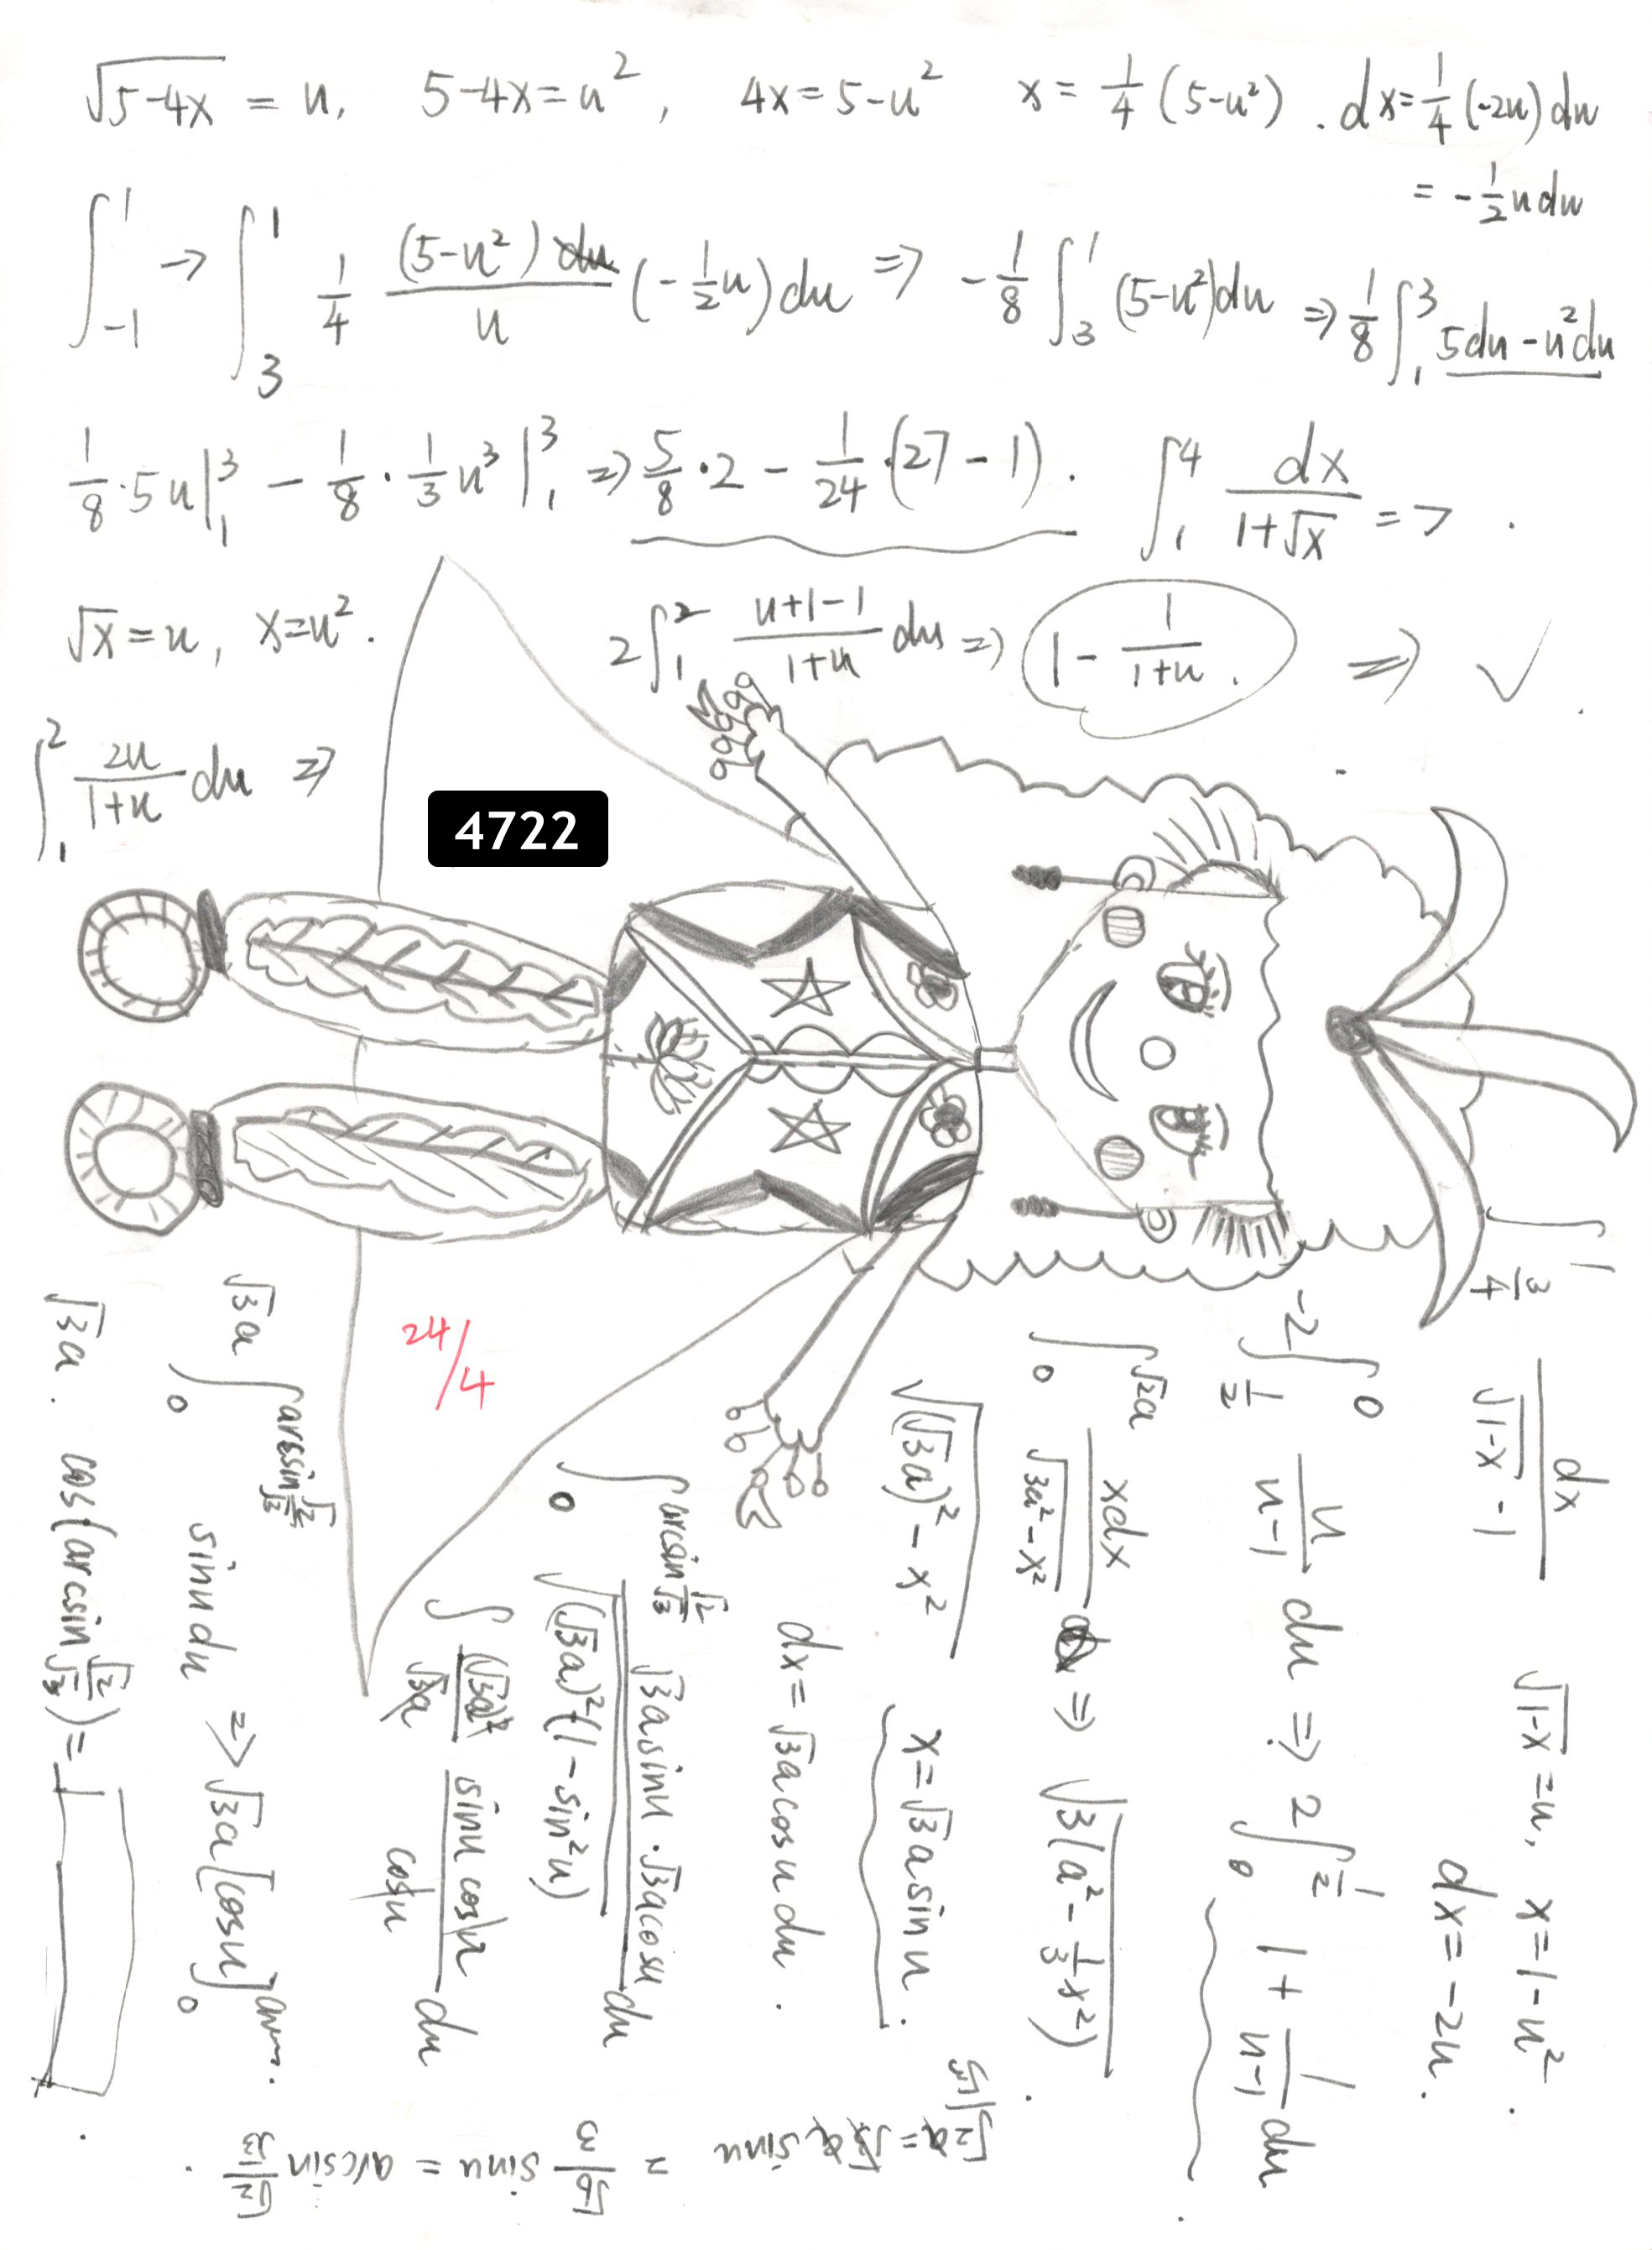 √(5-4x) = u, 5-4x=u², 4x=5-u² x = 1/4 (5-u²). dx=1/4 (-2u) du
= -1/2 u du
∫_{-1}^{1} → ∫_{3}^{1} 1/4 (5-u²)/u (-1/2 u) du ⇒ -1/8 ∫_{3}^{1} (5-u²)du ⇒ 1/8 ∫_{1}^{3} 5du - u²du
1/8 · 5u|_{1}^{3} - 1/8 · 1/3 u³|_{1}^{3} ⇒ 5/8 · 2 - 1/24 · (27 - 1). ∫_{1}^{4} dx/(1+√x) =>
√x = u, x=u². 2∫_{1}^{2} (u+1-1)/(1+u) du ⇒ 1 - 1/(1+u). ⇒ √
∫_{1}^{2} 2u/(1+u) du ⇒
4722
24/4
∫_{3/4}^{1} dx/(√(1-x) - 1) √(1-x) = u, x = 1-u².
dx = -2u.
-2∫_{1/2}^{0} u/(u-1) du ⇒ 2∫_{0}^{1/2} 1 + 1/(u-1) du
∫_{0}^{√2a} xdx/√(3a²-x²) ⇒ √(3(a² - 1/3 x²))
√((√3a)² - x²) x = √3a sinu.
dx = √3a cosu du.
∫_{0}^{arcsin √2/√3} √3a sinu · √3a cosu/√((√3a)²(1-sin²u)) du
∫ (√3a)²/√3a sinu cosu/cosu du
√3a ∫_{0}^{arcsin √2/√3} sinu du ⇒ √3a [cosu]_{0}^{arc...}
√3a · cos(arcsin √2/√3) =
√2a = √3a sinu = √6/3 sinu = arcsin √2/√3.